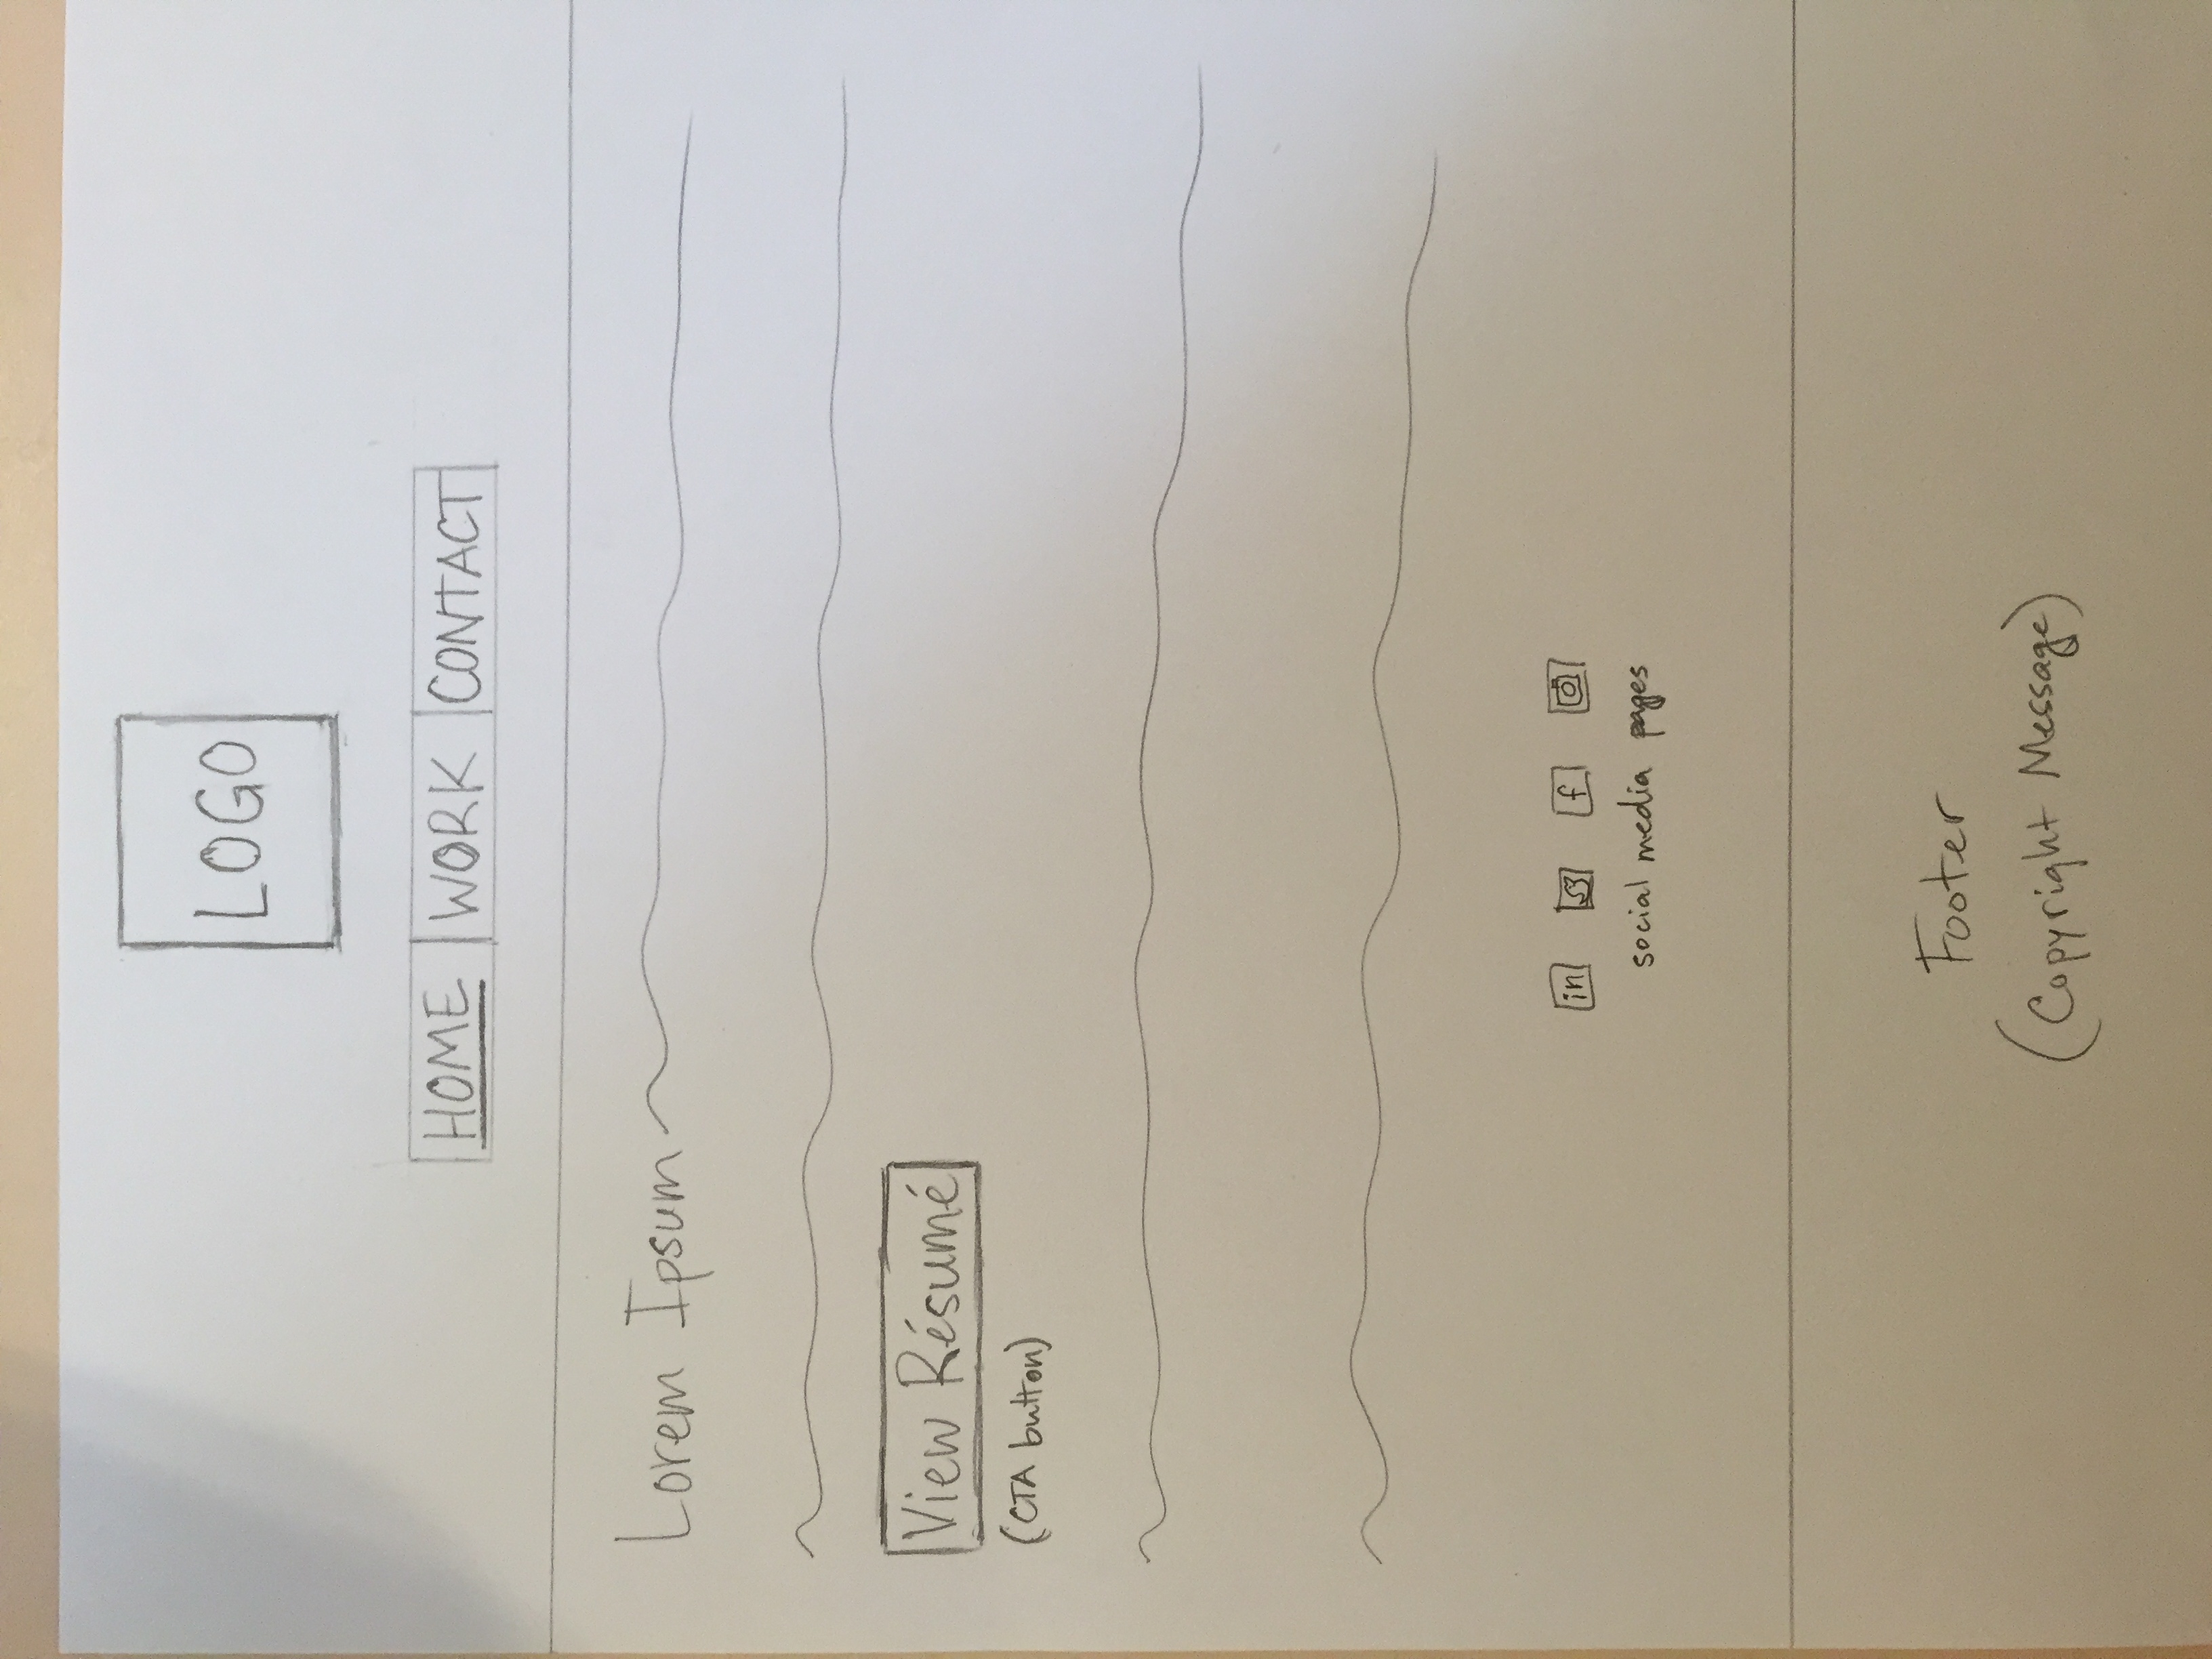 LOGO
HOME WORK CONTACT
Lorem Ipsum
View Résumé
(CTA button)
in f
social media pages
Footer
(Copyright Message)